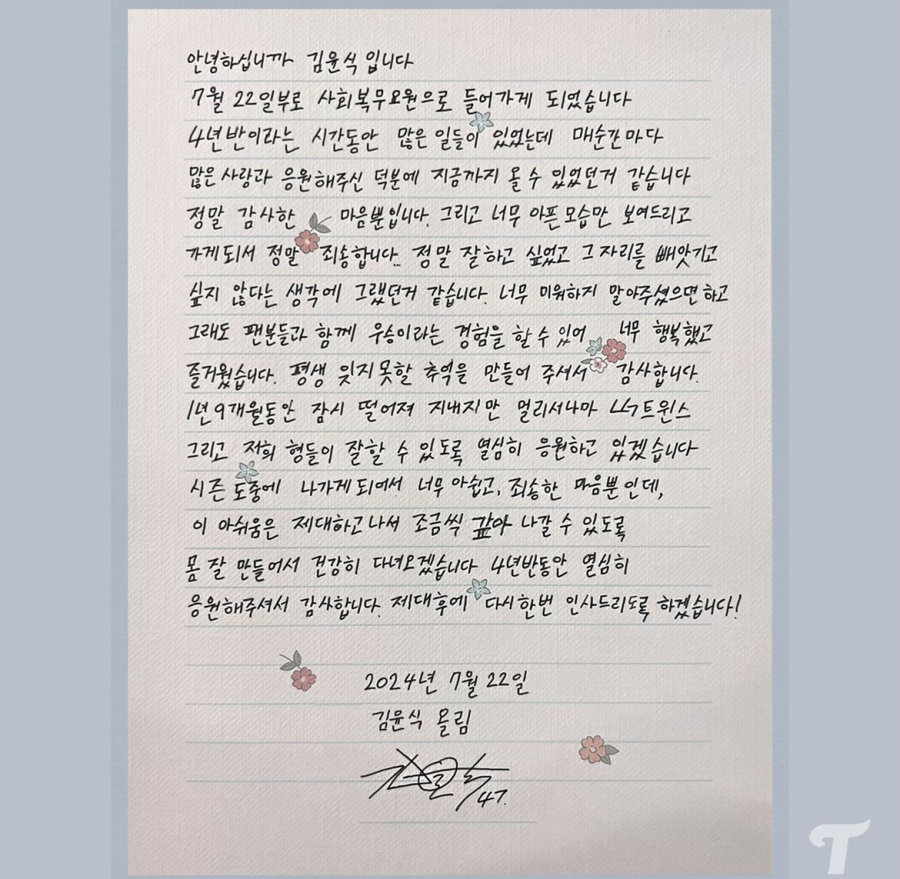 안녕하십니까 김윤식 입니다
7월 22일부로 사회복무요원으로 들어가게 되었습니다
4년반이라는 시간동안 많은 일들이 있었는데 매순간마다
많은 사랑과 응원해주신 덕분에 지금까지 올 수 있었던거 같습니다
정말 감사한 마음뿐입니다. 그리고 너무 아픈 모습만 보여드리고
가게되서 정말 죄송합니다.. 정말 잘하고 싶었고 그 자리를 빼앗기고
싶지 않다는 생각에 그랬던거 같습니다. 너무 미워하지 말아주셨으면 하고
그래도 팬분들과 함께 우승이라는 경험을 할 수 있어 너무 행복했고
즐거웠습니다. 평생 잊지못할 추억을 만들어 주셔서 감사합니다.
1년 9개월동안 잠시 떨어져 지내지만 멀리서나마 LG트윈스
그리고 저희 형들이 잘할 수 있도록 열심히 응원하고 있겠습니다
시즌 도중에 나가게 되어서 너무 아쉽고, 죄송한 마음뿐인데,
이 아쉬움은 제대하고나서 조금씩 갚아 나갈 수 있도록
몸 잘 만들어서 건강히 다녀오겠습니다 4년반동안 열심히
응원해주셔서 감사합니다. 제대후에 다시한번 인사드리도록 하겠습니다!
2024년 7월 22일
김윤식 올림
47.
T